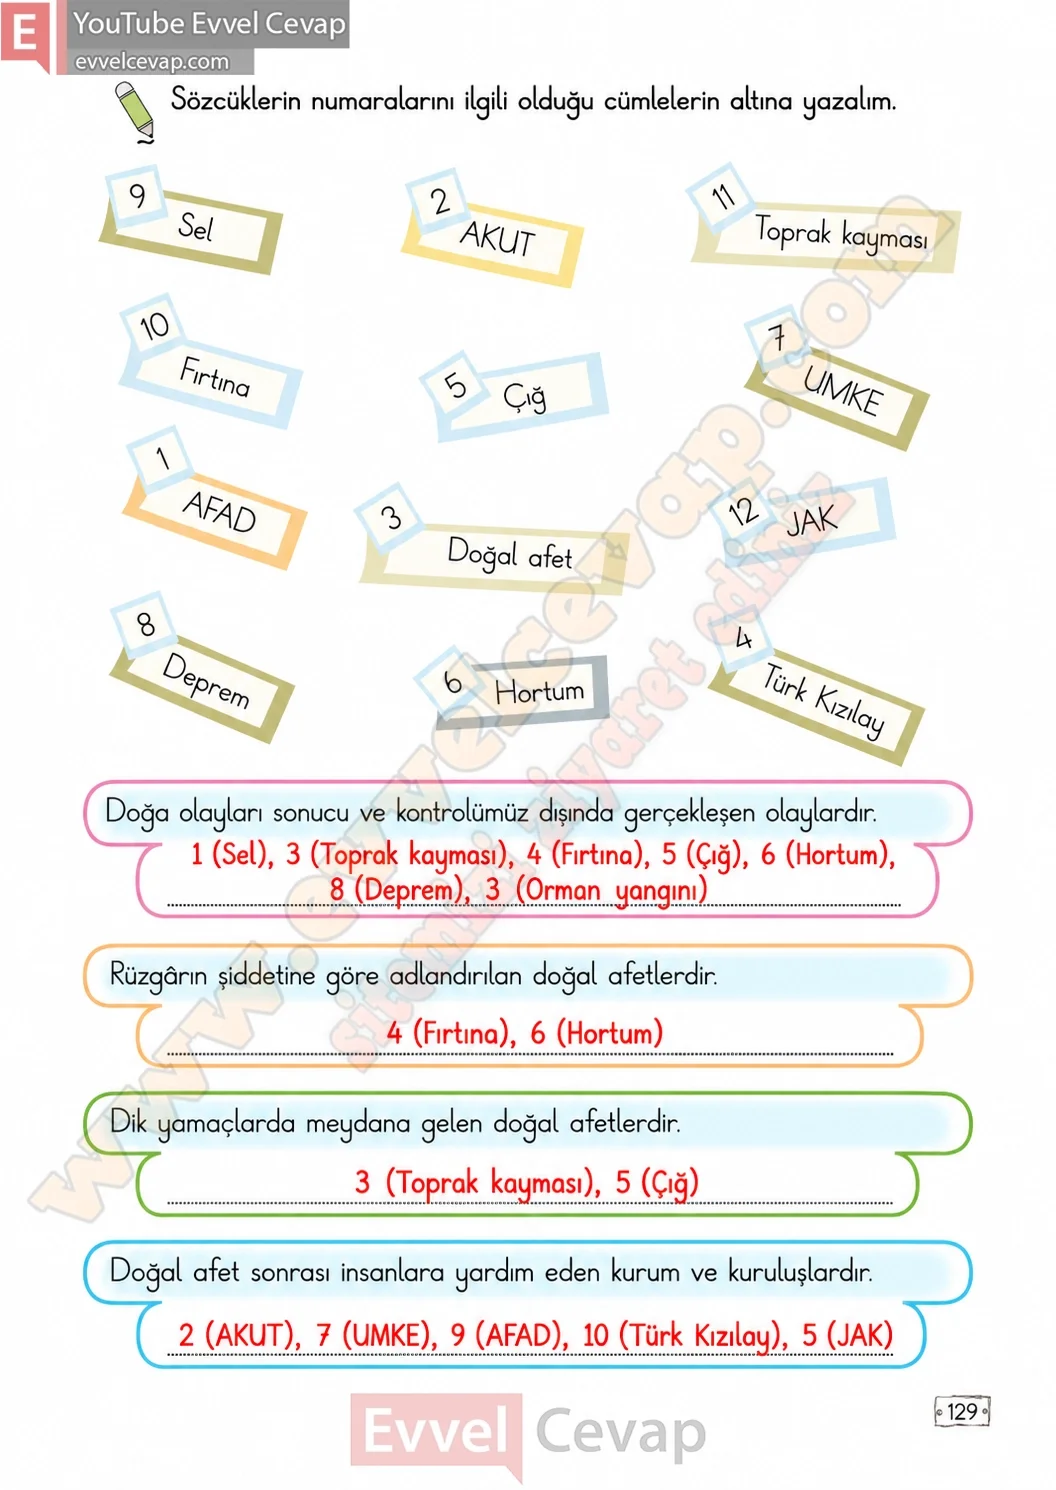 E YouTube Evvel Cevap
evvelcevap.com
Sözcüklerin numaralarını ilgili olduğu cümlelerin altına yazalım.
9 Sel
2 AKUT
11 Toprak kayması
10 Fırtına
5 Çığ
7 UMKE
1 AFAD
3 Doğal afet
12 JAK
8 Deprem
6 Hortum
4 Türk Kızılay
Doğa olayları sonucu ve kontrolümüz dışında gerçekleşen olaylardır.
1 (Sel), 3 (Toprak kayması), 4 (Fırtına), 5 (Çığ), 6 (Hortum),
8 (Deprem), 3 (Orman yangını)
Rüzgârın şiddetine göre adlandırılan doğal afetlerdir.
4 (Fırtına), 6 (Hortum)
Dik yamaçlarda meydana gelen doğal afetlerdir.
3 (Toprak kayması), 5 (Çığ)
Doğal afet sonrası insanlara yardım eden kurum ve kuruluşlardır.
2 (AKUT), 7 (UMKE), 9 (AFAD), 10 (Türk Kızılay), 5 (JAK)
www.evvelcevap.com
sitemizi ziyaret ediniz
129
Evvel Cevap